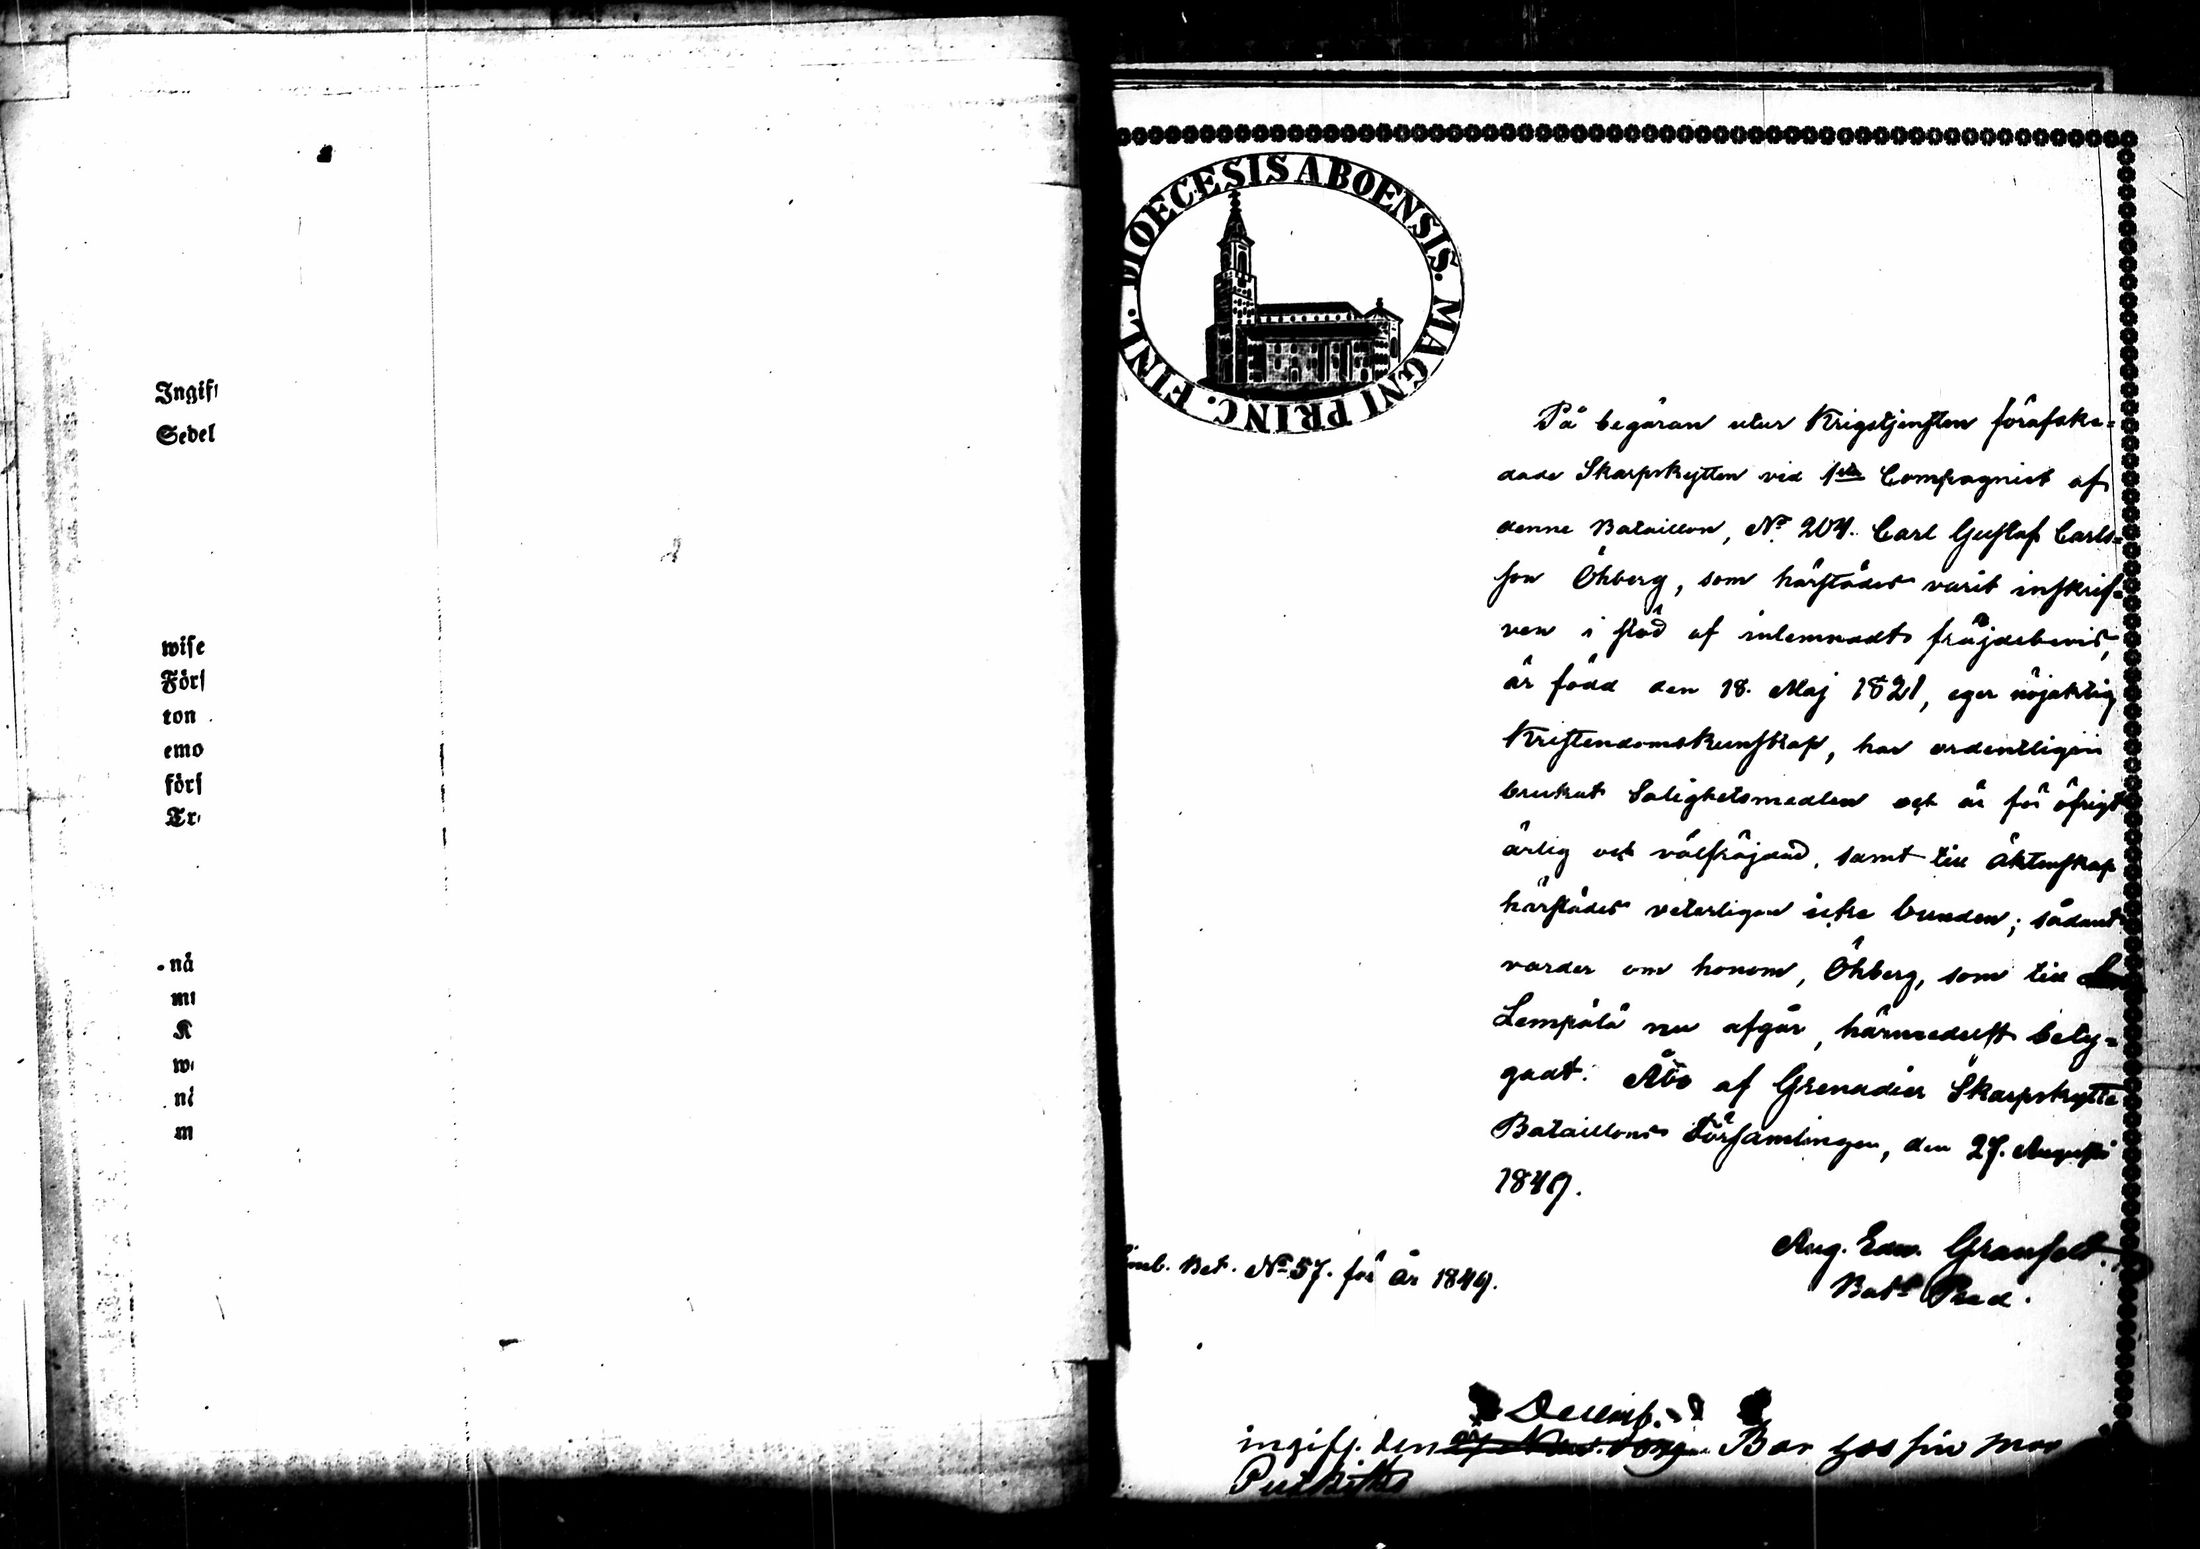 Ingif
Sedel
wise
Förs
ton
emo
förs
Tr
nå
mi
K
w
nå
m
DIOECESIS ABOENSIS. MAGNI PRINC. FINL.
På begäran utur Krigstjensten föräfske=
dade Skarpskytten vid 1sta Compagniet af
denne Bataillon, No 204. Carl Gustaf Carls=
son Öhberg, som härstädes varit inskrif=
ven i stöd af inlemnadt fräjdebevis,
är född den 18. Maj 1821, eger nöjaktig
Kristendomskunskap, har ordentligen
brukat Salighetsmedlen och är för öfrigt
ärlig och välfräjdad, samt till äktenskap
härstädes veterligen icke bunden; sådant
varder om honom, Öhberg, som till
Lempälä nu afgår, härmedelst bety=
gadt. Åbo af Grenadier Skarpskytte
Bataillons Församlingen, den 27. Augusti
1849.
Aug. Edw. Granfelt.
Bats Pred.
Bet. No 57. för år 1849.
Decemb.
ingifv. den Bor hos sin mor